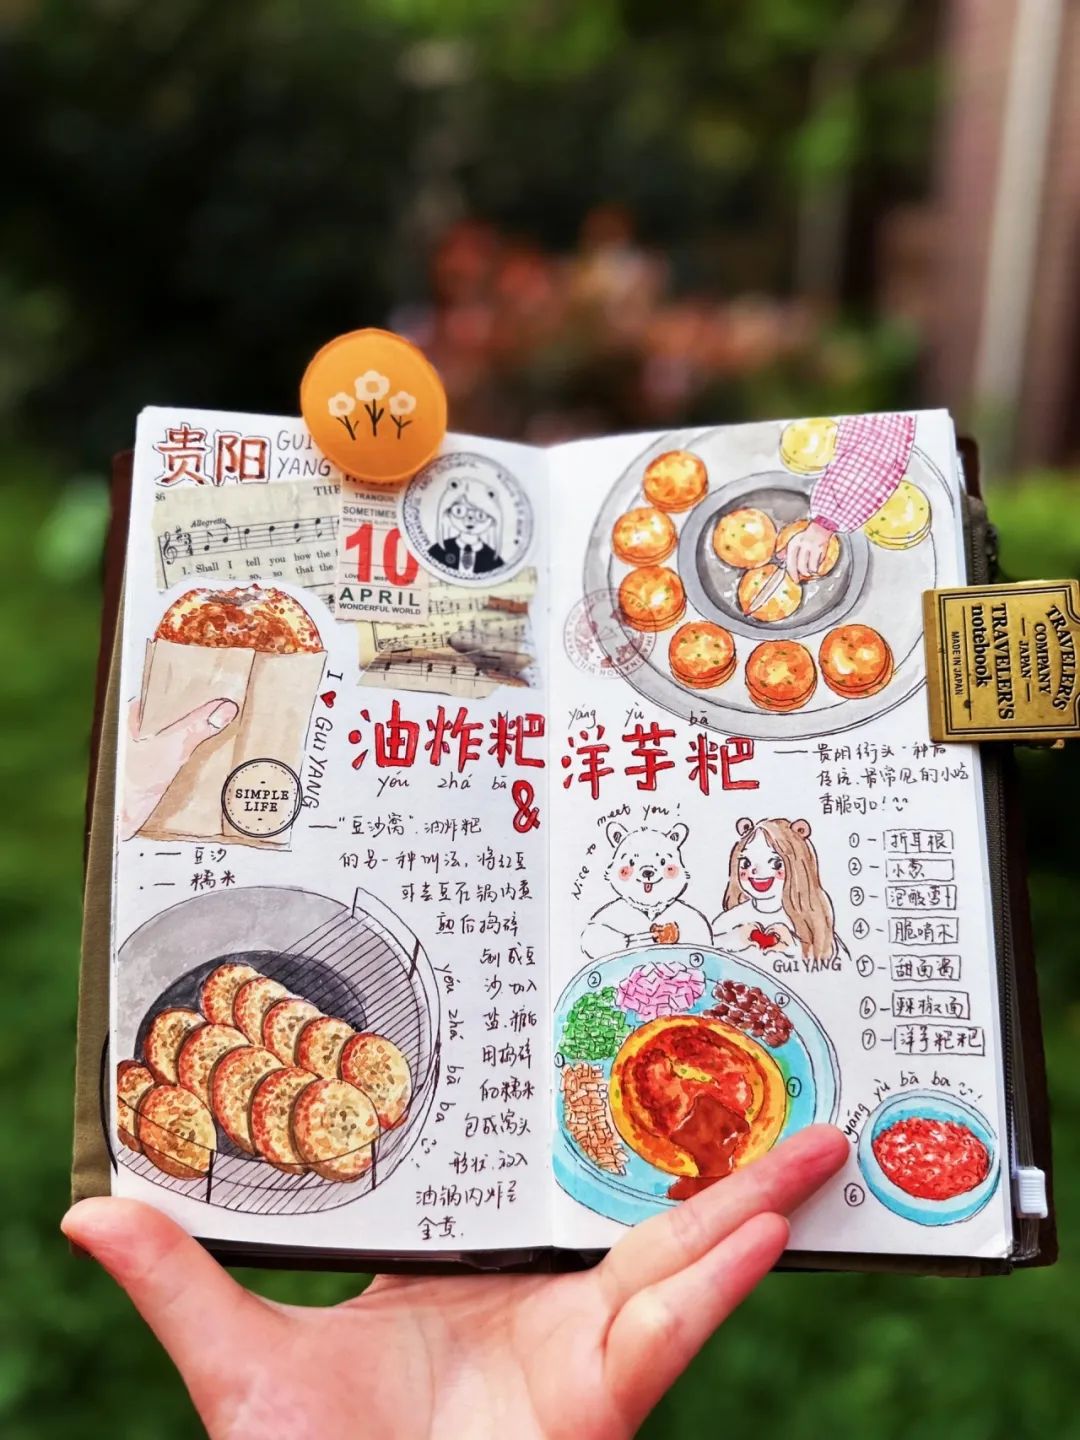 贵阳
GUI
YANG
86
THE
Allegretto
1. Shall I tell you how the
so, so that the
TRANQUIL
SOMETIMES
10
APRIL
WONDERFUL WORLD
I ♥ GUI YANG
SIMPLE
LIFE
油炸粑
yóu zhá bā
&
—“豆沙窝”.油炸粑
的另一种叫法,将红豆
或芸豆在锅内煮
熟后捣碎
制成豆
沙加入
盐.猪油
用捣碎
的糯米
包成窝头
形状.放入
油锅内炸至
金黄.
· — 豆沙
· — 糯米
yóu zhá bā ba
yáng yù bā
洋芋粑
— 贵阳街头一种后
最常见的小吃
香脆可口!
Nice to meet you!
GUI YANG
①- 折耳根
②- 小葱
③- 泡酸萝卜
④- 脆哨
⑤- 甜面酱
⑥- 辣椒面
⑦- 洋芋粑粑
② ③ ④ ① ⑦
yáng yù bā ba
⑥
TRAVELER'S
COMPANY
JAPAN
TRAVELER'S
notebook
MADE IN JAPAN